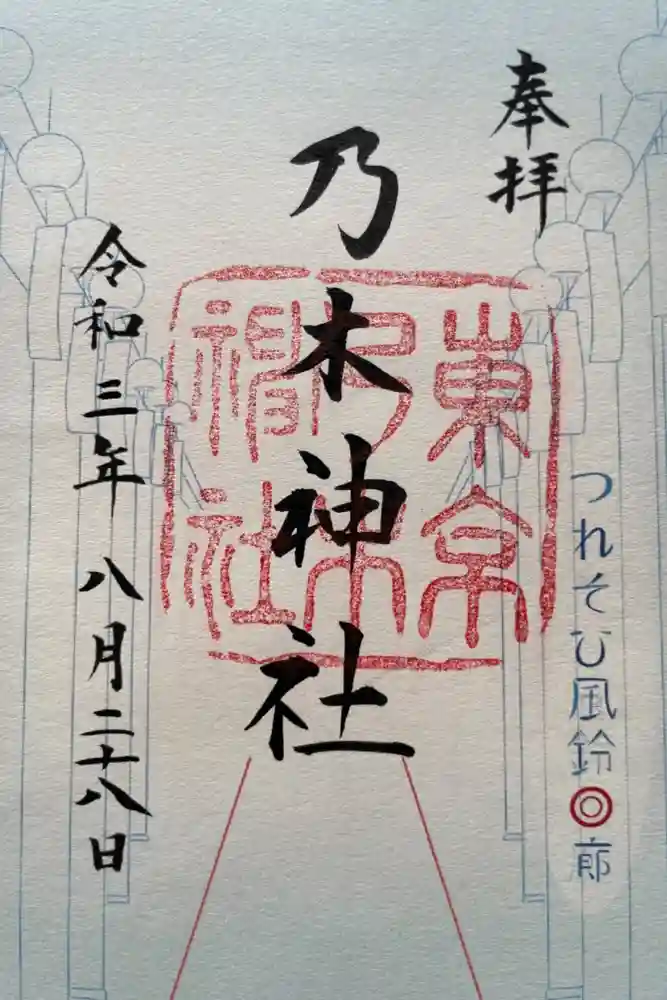 奉拝
乃木神社
東京
乃木
神社
令和三年八月二十八日
つれそひ風鈴◎廊